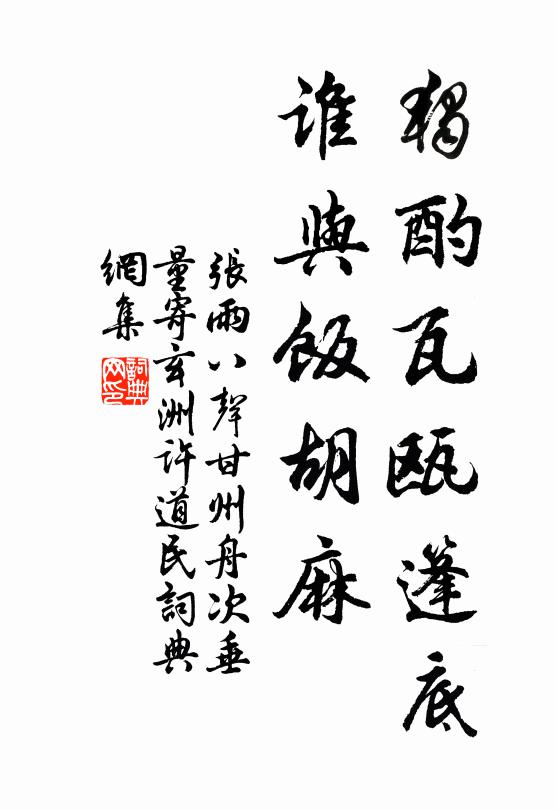 獨酌瓦甌篷底
誰與飯胡麻
張雨八聲甘州舟次垂
量寄玄洲許道民詞典
網集
詞典
网印